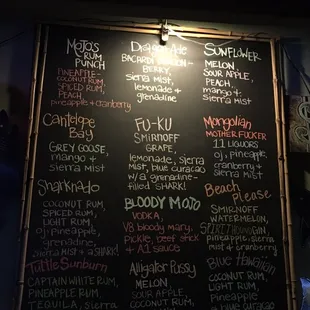 MoJo's
RUM
PUNCH
PINEAPPLE-
COCONUT RUM,
SPICED RUM,
PEACH,
pineapple + cranberry
Dragon Ade
BACARDI
BERRY,
Sierra mist,
lemonade +
grenadine
SUNFLOWER
MELON
SOUR APPLE,
PEACH,
mango +
sierra mist
Cantelope
Bay
GREY GOOSE,
mango +
sierra mist
FU-KU
SMIRNOFF
GRAPE,
lemonade, Sierra
Mist, blue curacao
w/a grenadine-
filled SHARK!
Mongolian
MOTHER FUCKER
11 LIQUORS
oj, pineapple,
+ cranberry
Sharknado
COCONUT RUM,
SPICED RUM,
LIGHT RUM,
oj, pineapple,
grenadine,
sierra mist + a SHARK!
BLOODY MOJO
VODKA,
V8 bloody mary,
Pickle, beef stick
+ A1 sauces
Beach
Please
SMIRNOFF
WATERMELON,
pineapple, sierra
mist + cranberry
Turtle Sunburn
CAPTAIN WHITE RUM,
PINEAPPLE RUM,
TEQUILA, Sierra
Alligator Pussy
MELON
SOUR APPLE,
COCONUT RUM,
Blue Hawaiian
COCONUT RUM,
LIGHT RUM,
pineapple
+ blue